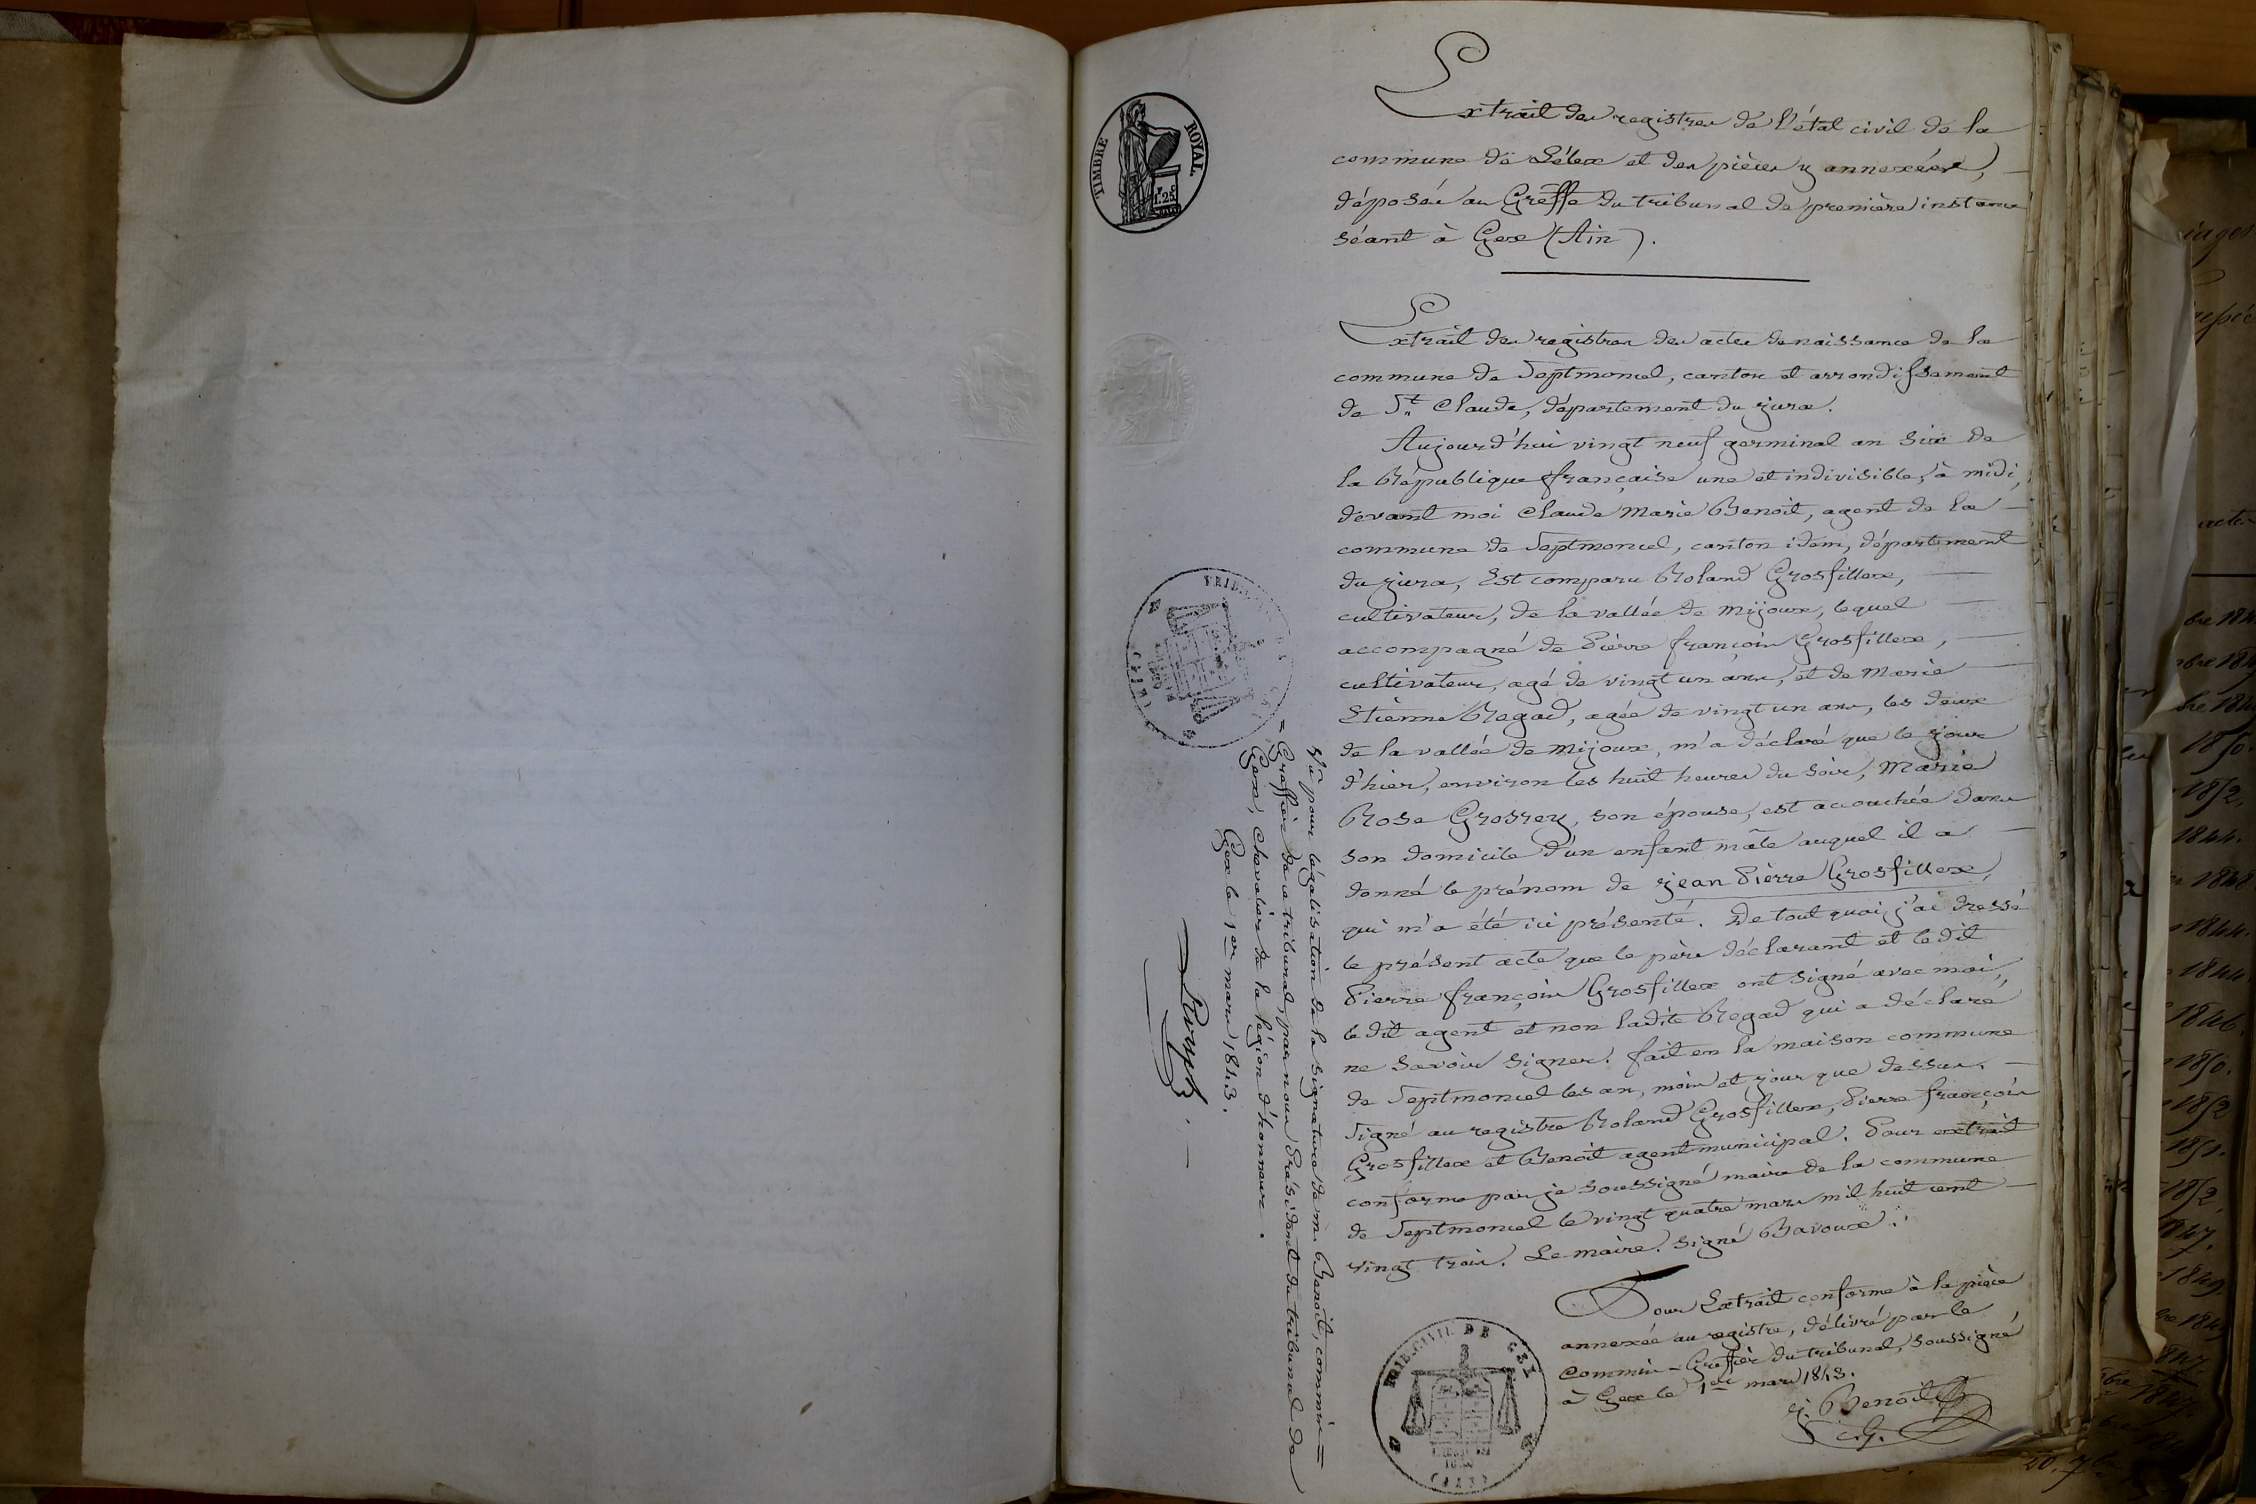 TIMBRE ROYAL
1F.25C
Extrait des registres de l'état civil de la
commune de Lélex et des pièces y annexées,
déposés au Greffe du tribunal de première instance
séant à Gex (Ain).
Extrait des registres des actes de naissance de la
commune de Septmoncel, canton et arrondissement
de St Claude, département du jura.
Aujourd'hui vingt neuf germinal an six de
la République française une et indivisible, à midi,
devant moi Claude Marie Benoit, agent de la
commune de Septmoncel, canton idem, département
du jura, Est comparu Roland Grosfillex,
cultivateur, de la vallée de Mijoux, lequel
accompagné de Pierre françois Grosfillex,
cultivateur, agé de vingt un ans, et de Marie
Etienne Regad, agée de vingt un ans, les deux
de la vallée de Mijoux, m'a déclaré que le jour
d'hier, environ les huit heures du soir, Marie
Rose Grosrey, son épouse, est accouchée dans
son domicile d'un enfant mâle auquel il a
donné le prénom de jean Pierre Grosfillex,
qui m'a été ici présenté. De tout quoi, j'ai dressé
le présent acte que le père déclarant et le dit
Pierre françois Grosfillex ont signé avec moi,
le dit agent et non ladite Regad qui a déclaré
ne savoir signer. fait en la maison commune
de Septmoncel les an, mois et jour que dessus.
Signé au registre Roland Grosfillex, Pierre françois
Grosfillex et Benoit agent municipal. Pour extrait
conforme par je soussigné maire de la commune
de Septmoncel le vingt quatre mars mil huit cent
vingt trois. Le maire. Signé Bavoux.
Pour Extrait conforme à la pièce
annexée au registre, délivré par le
Commis-Greffier du tribunal, soussigné
à Gex le 1er mars 1843.
j. Benoit
c.g.
TRIB. CIVIL DE GEX
(AIN)
Vu pour légalisation de la signature de me Benoit, commis-
Greffier de ce tribunal, par nous Président du tribunal de
Gex, Chevalier de la légion d'honneur.
Gex le 1er mars 1843.